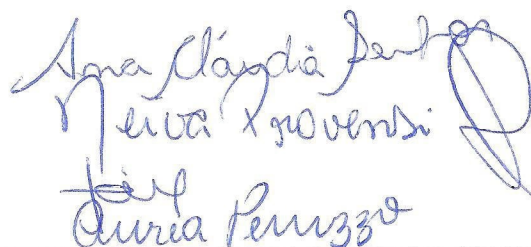 Ana Cláudia Santos
Neiva Provensi
Auria Peruzzo